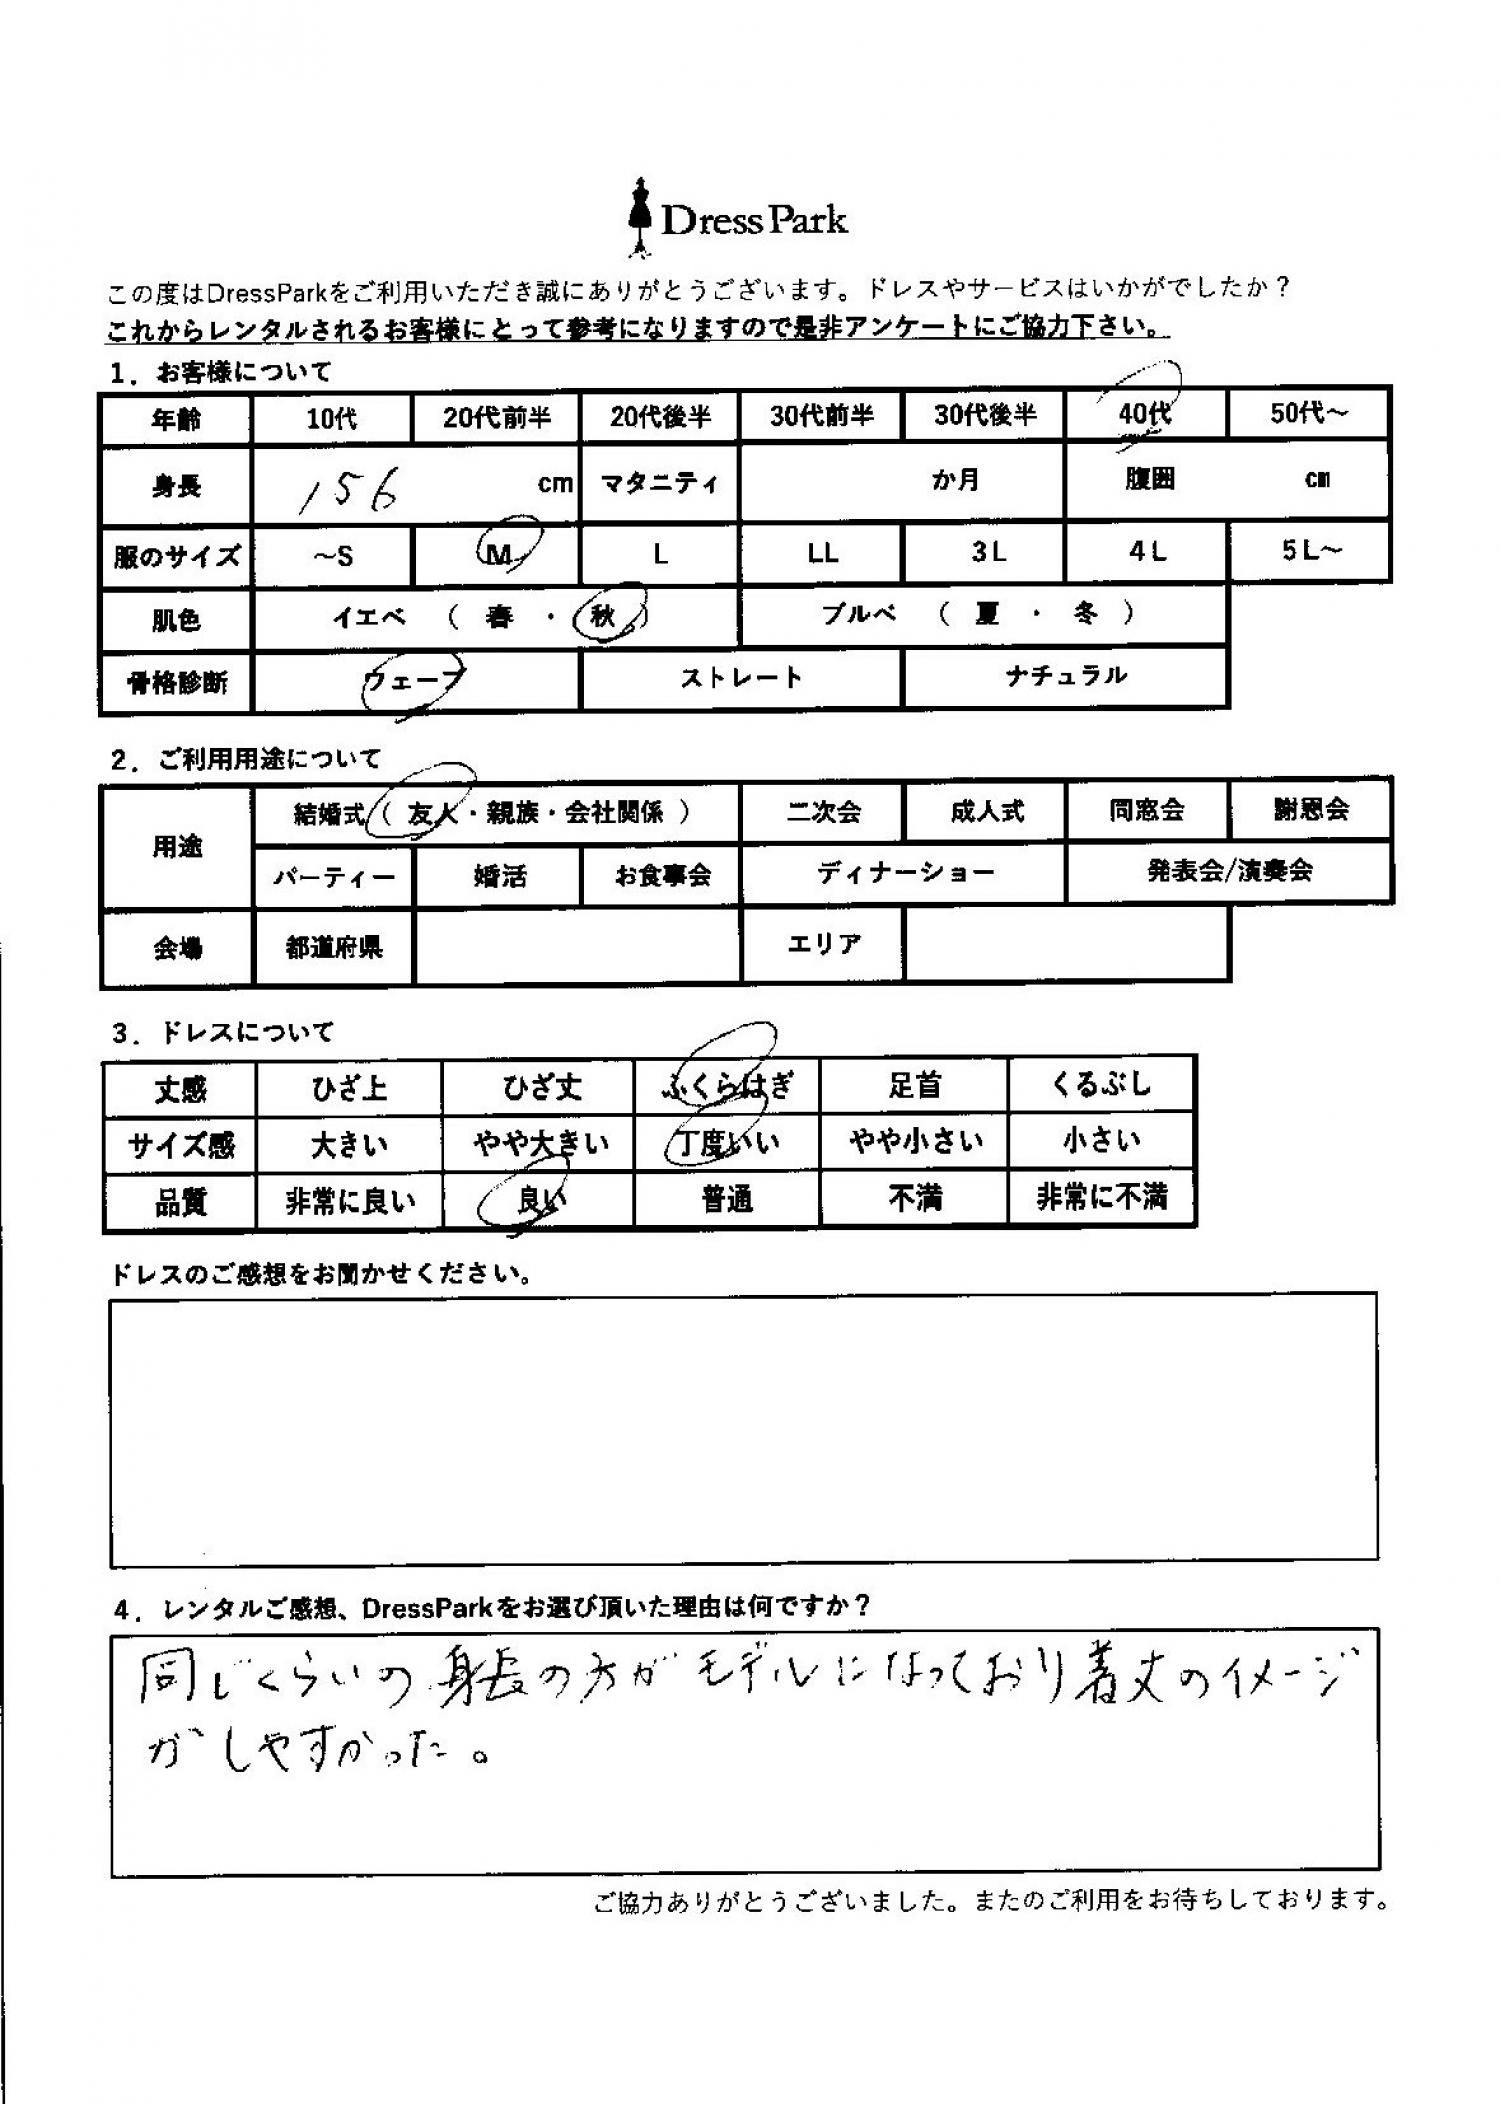 Dress Park
この度はDressParkをご利用いただき誠にありがとうございます。ドレスやサービスはいかがでしたか？
これからレンタルされるお客様にとって参考になりますので是非アンケートにご協力下さい。
1．お客様について
年齢 10代 20代前半 20代後半 30代前半 30代後半 40代 50代～
身長 156 cm マタニティ か月 腹囲 cm
服のサイズ ～S M L LL 3L 4L 5L～
肌色 イエベ （ 春 ・ 秋 ） ブルベ （ 夏 ・ 冬 ）
骨格診断 ウェーブ ストレート ナチュラル
2．ご利用用途について
用途 結婚式（ 友人・親族・会社関係 ） 二次会 成人式 同窓会 謝恩会
パーティー 婚活 お食事会 ディナーショー 発表会/演奏会
会場 都道府県 エリア
3．ドレスについて
丈感 ひざ上 ひざ丈 ふくらはぎ 足首 くるぶし
サイズ感 大きい やや大きい 丁度いい やや小さい 小さい
品質 非常に良い 良い 普通 不満 非常に不満
ドレスのご感想をお聞かせください。
4．レンタルご感想、DressParkをお選び頂いた理由は何ですか？
同じくらいの身長の方がモデルになっており着丈のイメージ
がしやすかった。
ご協力ありがとうございました。またのご利用をお待ちしております。